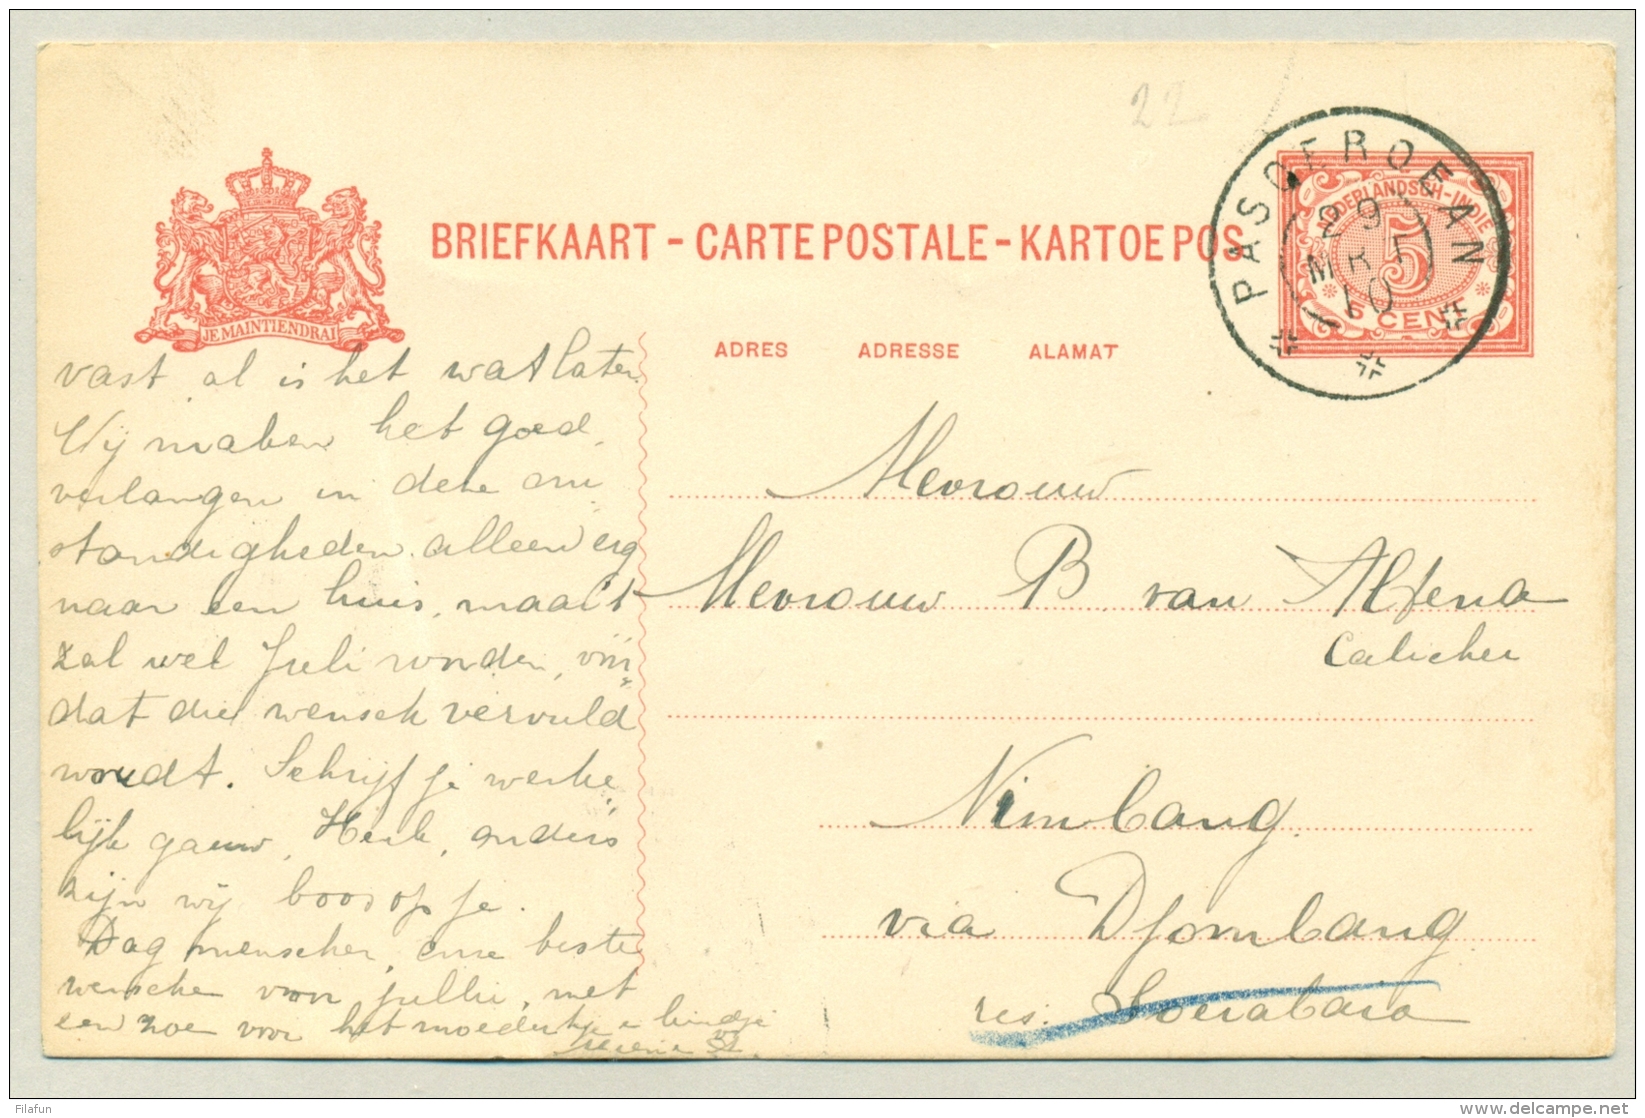 22
PASOEROEAN
29
MRT
10
NEDERLANDSCH-INDIE
5
5 CENT
JE MAINTIENDRAI
BRIEFKAART - CARTE POSTALE - KARTOE POS
ADRES ADRESSE ALAMAT
vast al is het wat laten.
Wij maken het goed,
verlangen in deze om
standigheden alleen erg
naar een huis, maar 't
zal wel Juli worden, vóór
dat die wensch vervuld
wordt. Schrijf je werke
lijk gauw, Henk, anders
zijn wij boos op je.
Dag menschen, onze beste
wenschen voor jullie, met
een zoen voor het moedertje e kindje
Mevrouw
Mevrouw B van Altena
Calicher
Nimbang.
via Djombang
res. Soerabaia
Filafun
delcampe.net